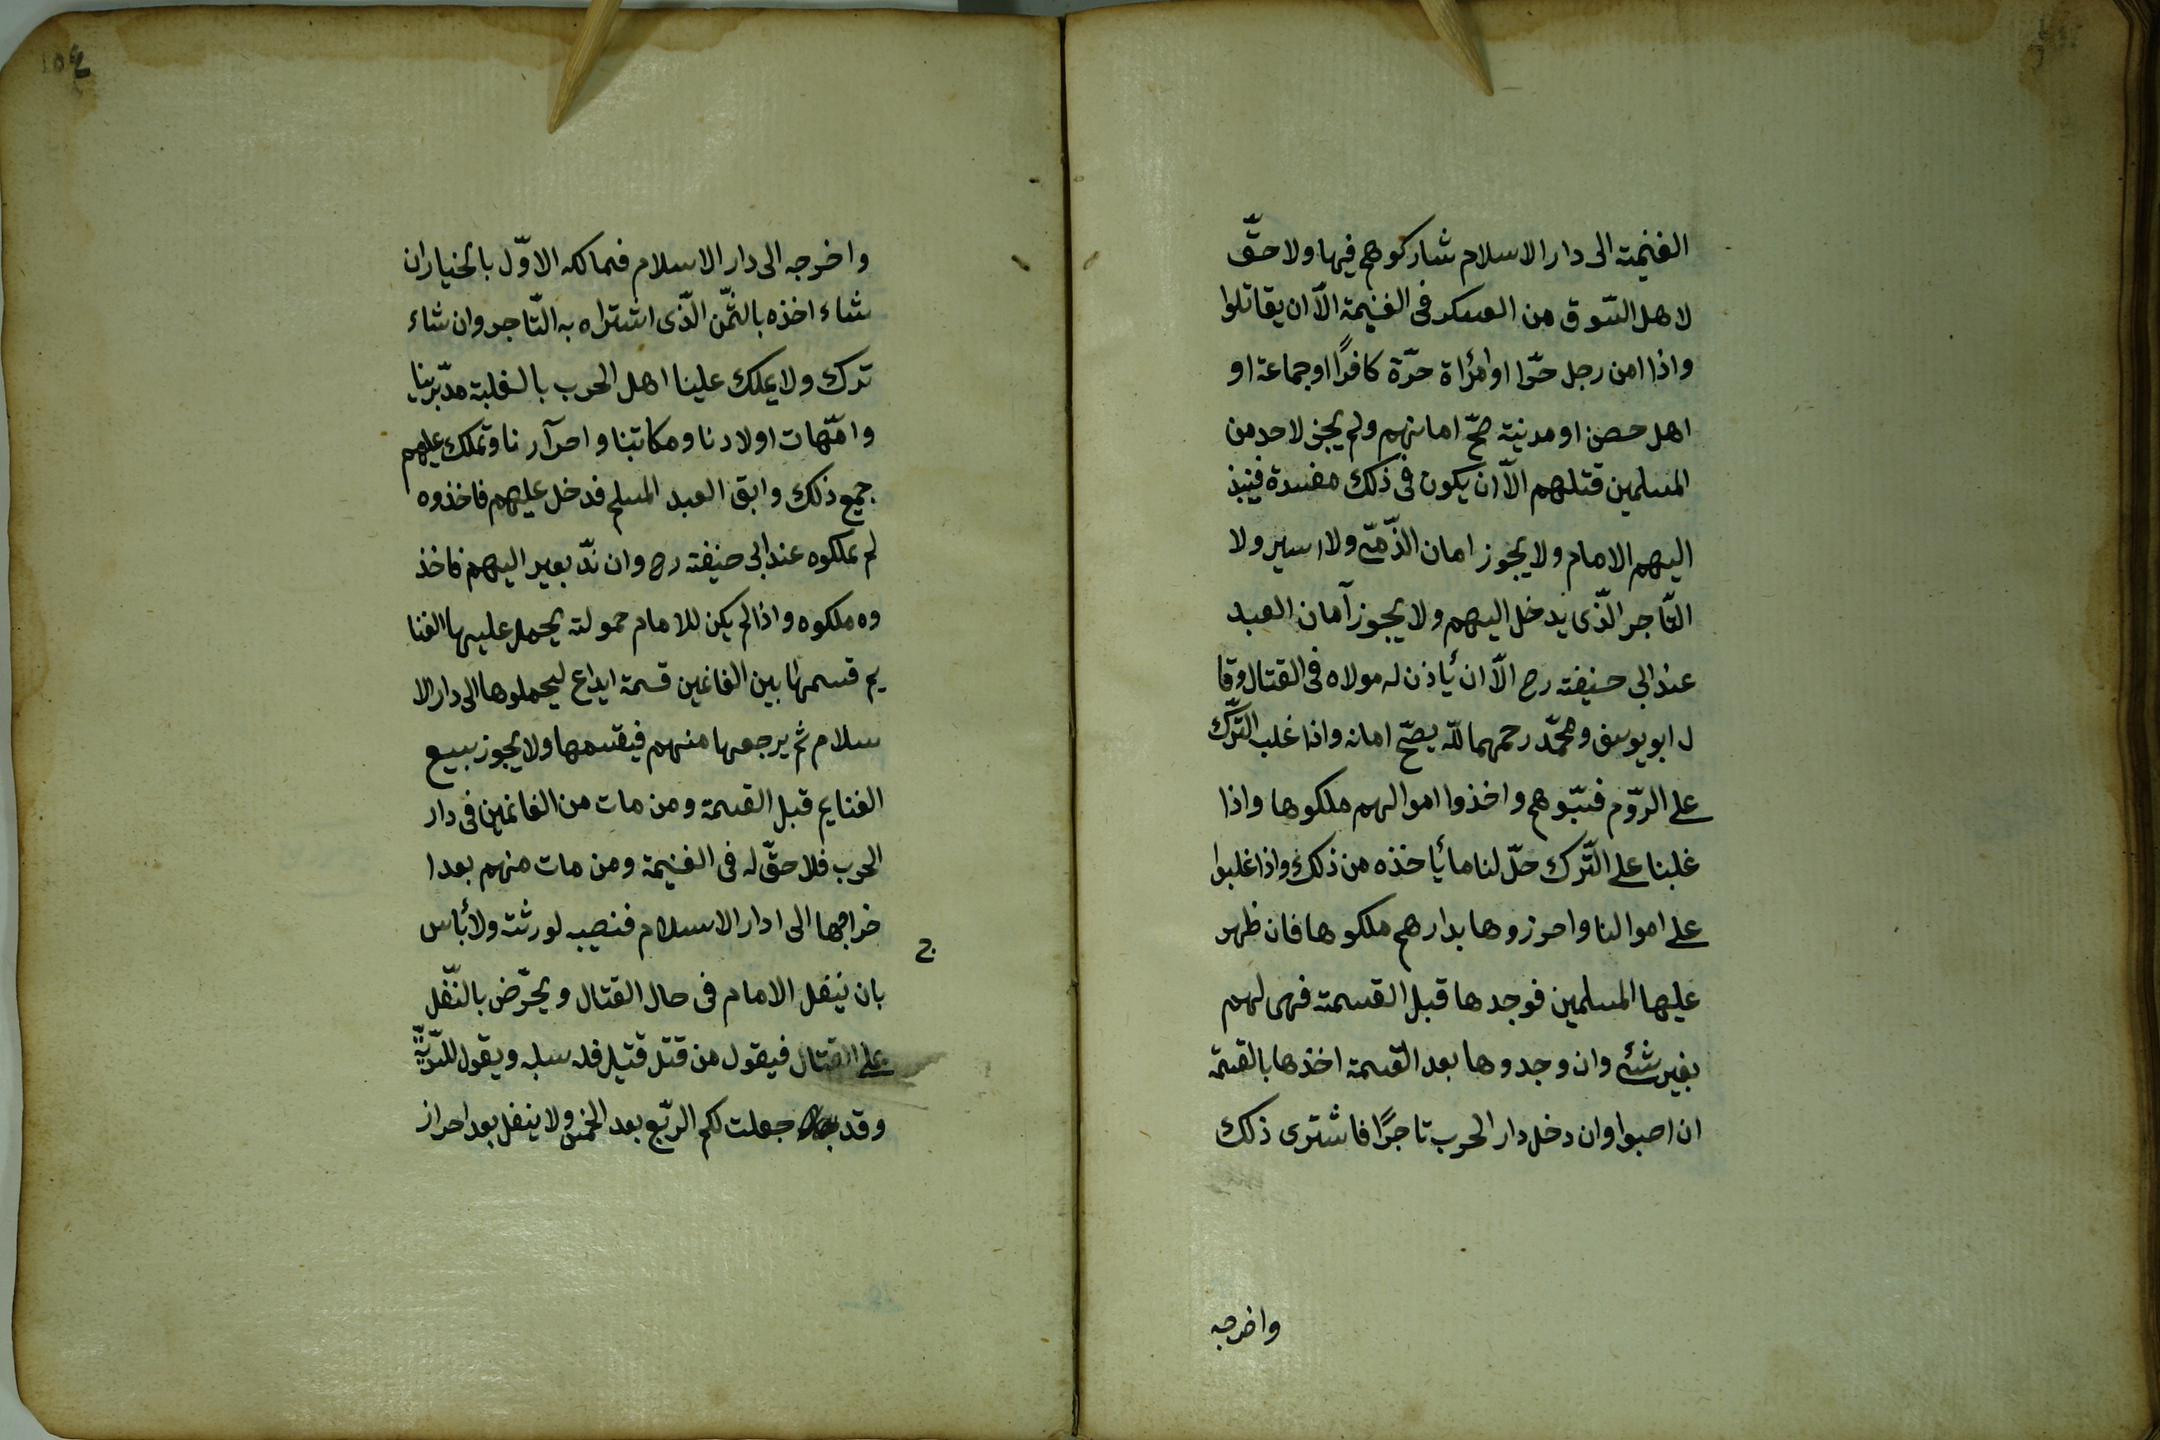 الغنيمة الى دار الاسلام شاركوهم فيها ولا حقّ
لاهل السّوق من العسكر فى الغنيمة الّا ان يقاتلوا
واذا امن رجل حرّا او امرأة حرّة كافرًا او جماعة او
اهل حصن او مدنية صحّ امانهم ولم يجز لاحد من
المسلمين قتلهم الّا ان يكون فى ذلك مفسدة فينبذ
اليهم الامام ولا يجوز امان الذّمّى ولا اسير ولا
التّاجر الّذى يدخل اليهم ولا يجوز آمان العبد
عند ابى حنيفته رح الّا ان يأذن له مولاه فى القتال وقا
ل ابو يوسف ومحمّد رحمهما اللّه يصحّ امانه واذا غلب التّرك
على الرّوم فسبّوهم واخذوا اموالهم ملكوها واذا
غلبنا على التّرك حلّ لنا ما يأخذه من ذلك واذا غلبوا
على اموالنا واحرزوها بدارهم ملكوها فان ظهر
عليها المسلمين فوجدها قبل القسمته فهى لهم
بغير شئ وان وجدوها بعد القسمة اخذها بالقيمة
ان احبوا وان دخل دار الحرب تاجرًا فاشترى ذلك
واخرجه
١٥٤
واخرجه الى دار الاسلام فمالكه الاوّل بالخيار ان
شاء اخذه بالثّمن الّذى اشتراه به التّاجر وان شاء
ترك ولا يملك علينا اهل الحرب بالغلبة مدبّرينا
وامّهات اولادنا ومكاتبنا واحرآرنا وتملك عليهم
جميع ذلك وابق العبد المسلم فدخل عليهم فاخذوه
لم يملكوه عند ابى حنيفته رح وان ندّ بعير اليهم فاخذ
وه ملكوه واذا لم يكن للامام حمولته يحمل عليها الغنا
يم قسمها بين الغانمين قسمة ايداع ليحملوها الى دار الا
سلام ثم يرجعها منهم فيقسمها ولا يجوز بيع
الغنايم قبل القسمة ومن مات من الغانمين فى دار
الحرب فلا حقّ له فى الغنيمة ومن مات منهم بعد ا
خراجها الى ادار الاسلام فنصيبه لورثته ولا بأس
ج
بان ينفل الامام فى حال القتال ويحرّض بالنّفل
على القتال فيقول من قتل قتيل فله سلبه ويقول للسّريّة
وقد جعلت لكم الرّبع بعد الخمس ولا ينفل بعد احراز